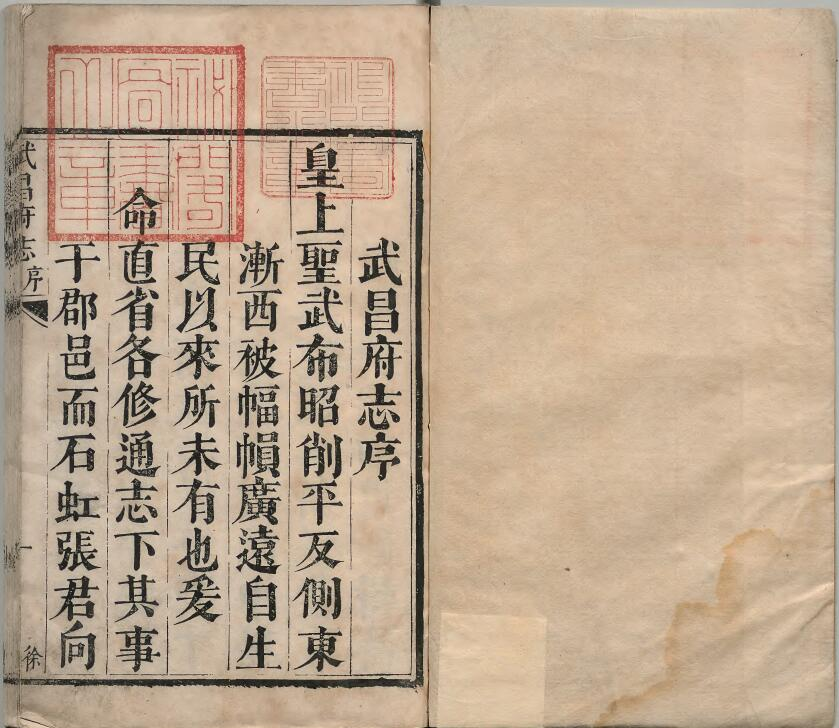 武昌府志序
皇上聖武布昭削平反側東
漸西被幅幀廣遠自生
民以來所未有也爰
命直省各修通志下其事
于郡邑而石虹張君向
武昌府志 序 一 徐